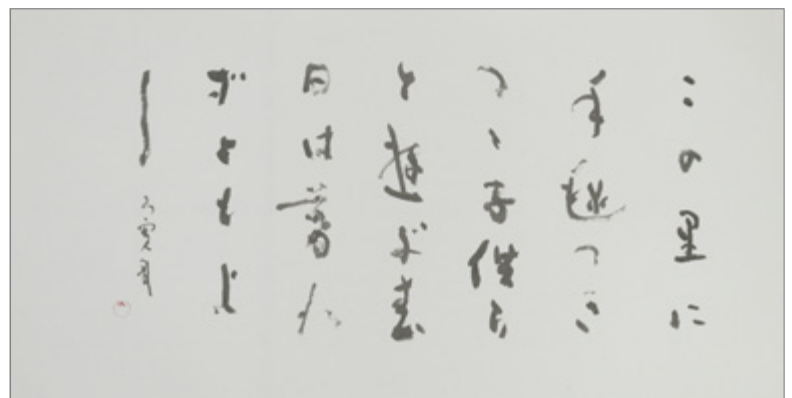 この里に
手毬つき
つゝ子供ら
と遊ぶ春
日は暮れ
ずともよ
し